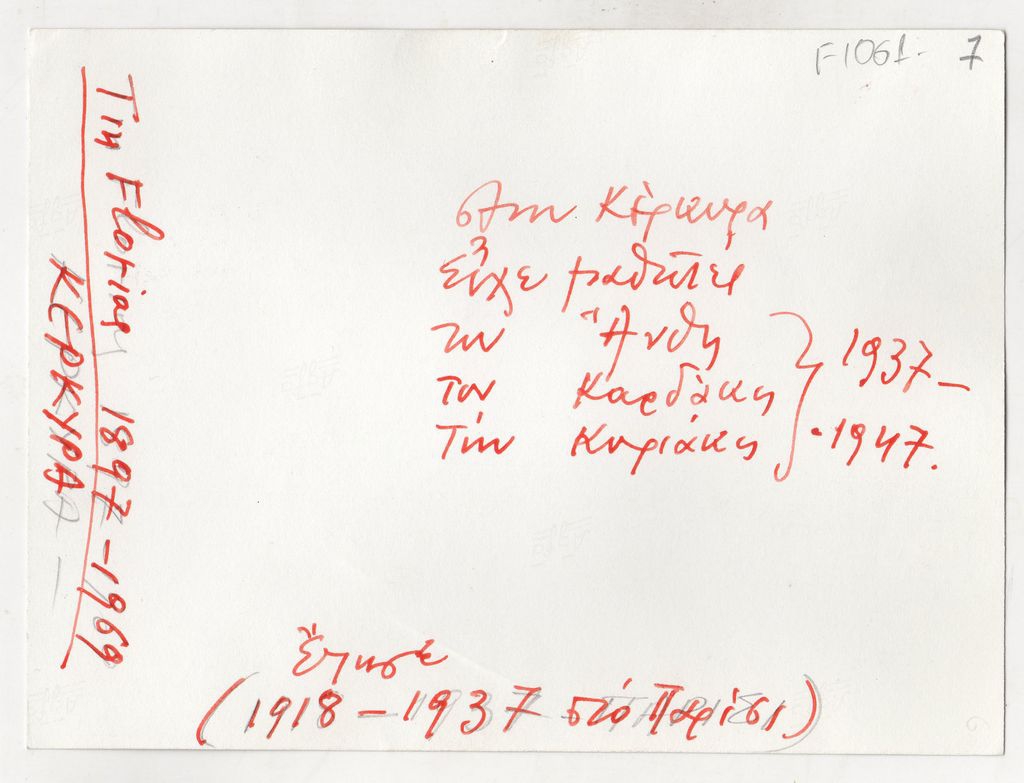 F1061- 7
Τιη Florias 1897-1969
ΚΕΡΚΥΡΑ -
στην Κέρκυρα
εἶχε μαθητές
τον Ἄνθη
τον Καρδάκη
Τόν Κυριάκη
} 1937 -
- 1947.
Ἔζησε
(1918 - 1937 στό Παρίσι)